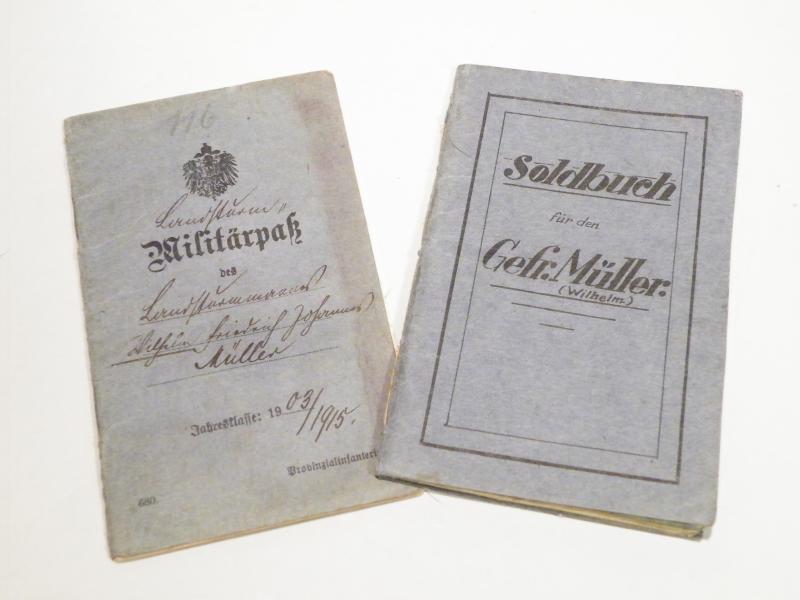 116
Landsturm-
Militärpaß
des
Landsturmmannes
Wilhelm Friedrich Johannes
Müller
Jahresklasse: 1903/1915.
Provinzialinfanteri
680.
Soldbuch
für den
Gefr. Müller.
(Wilhelm)